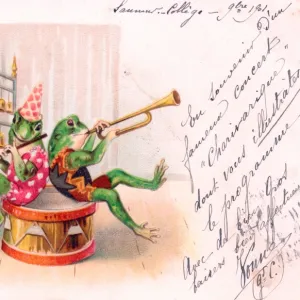 Saumur - Collège - 9bre 1901
En souvenir d'un
fameux concert
"Charivarique"
dont vous illustrates
le programme
Avec de gros
baisers